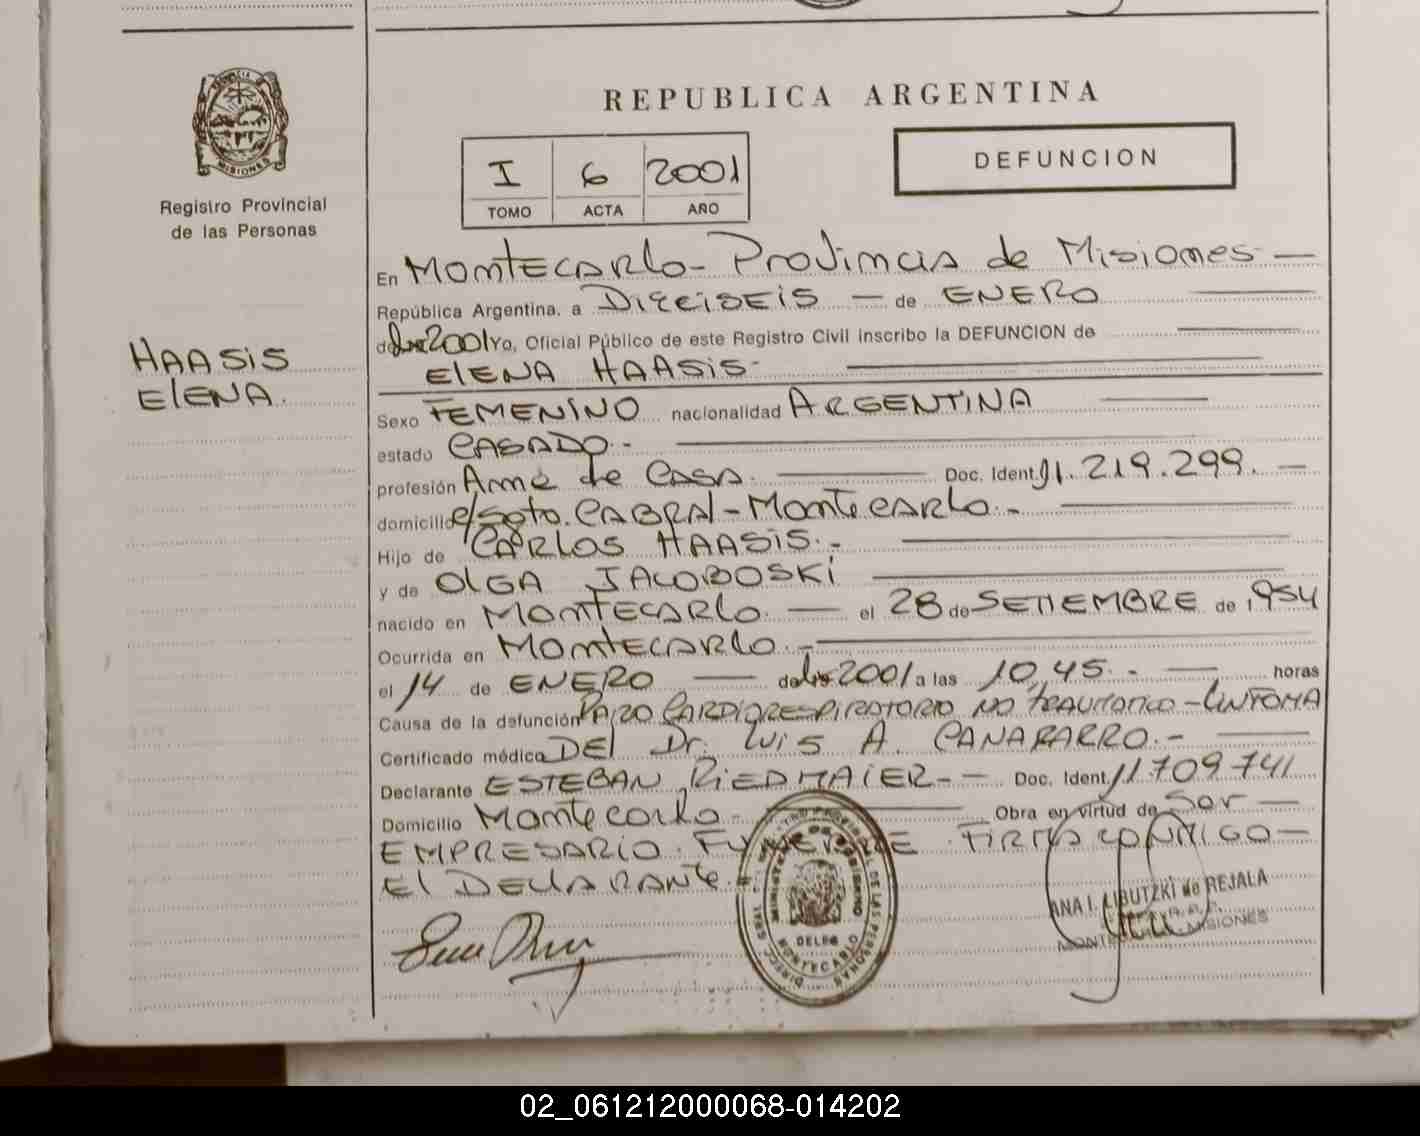 REPUBLICA ARGENTINA
PROVINCIA DE
MISIONES
Registro Provincial
de las Personas
I 6 2001
TOMO ACTA AÑO
DEFUNCION
HAASIS
ElENA.
En MONTECARLO - PROVINCIA de Misiones -
República Argentina, a DIECISEIS - de ENERO
de 2001 Yo, Oficial Público de este Registro Civil inscribo la DEFUNCION de
ElENA HAASIS-
Sexo FEMENINO nacionalidad ARGENTINA
estado CASADO.-
profesión Ama de Casa. Doc. Ident. 11.219.299. -
domicilio c/Sgto. CABRAl - MONTECARLO.-
Hijo de CARLOS HAASIS.-
y de OlGA JACOBOSKI
nacido en MONTECARLO. - el 28 de SETIEMBRE de 1.954
Ocurrida en MONTECARLO.-
el 14 de ENERO - de 2001 a las 10,45.- - horas
Causa de la defunción PARO CARDIORESPIRATORIO NO TRAUMATICO -
Certificado médico DEl Dr. LUIS A. CANABARRO.-
Declarante ESTEBAN RIEDMAIER-- Doc. Ident. 11709741
Domicilio Montecarlo.- Obra en virtud de Ser -
EMPRESARIO FUNEBRE FIRMA CONMIGO-
El DECLARANTE.
ANA I. LIBUTZKI de REJALA
MISIONES
DELEG
MONTECARLO
02_061212000068-014202